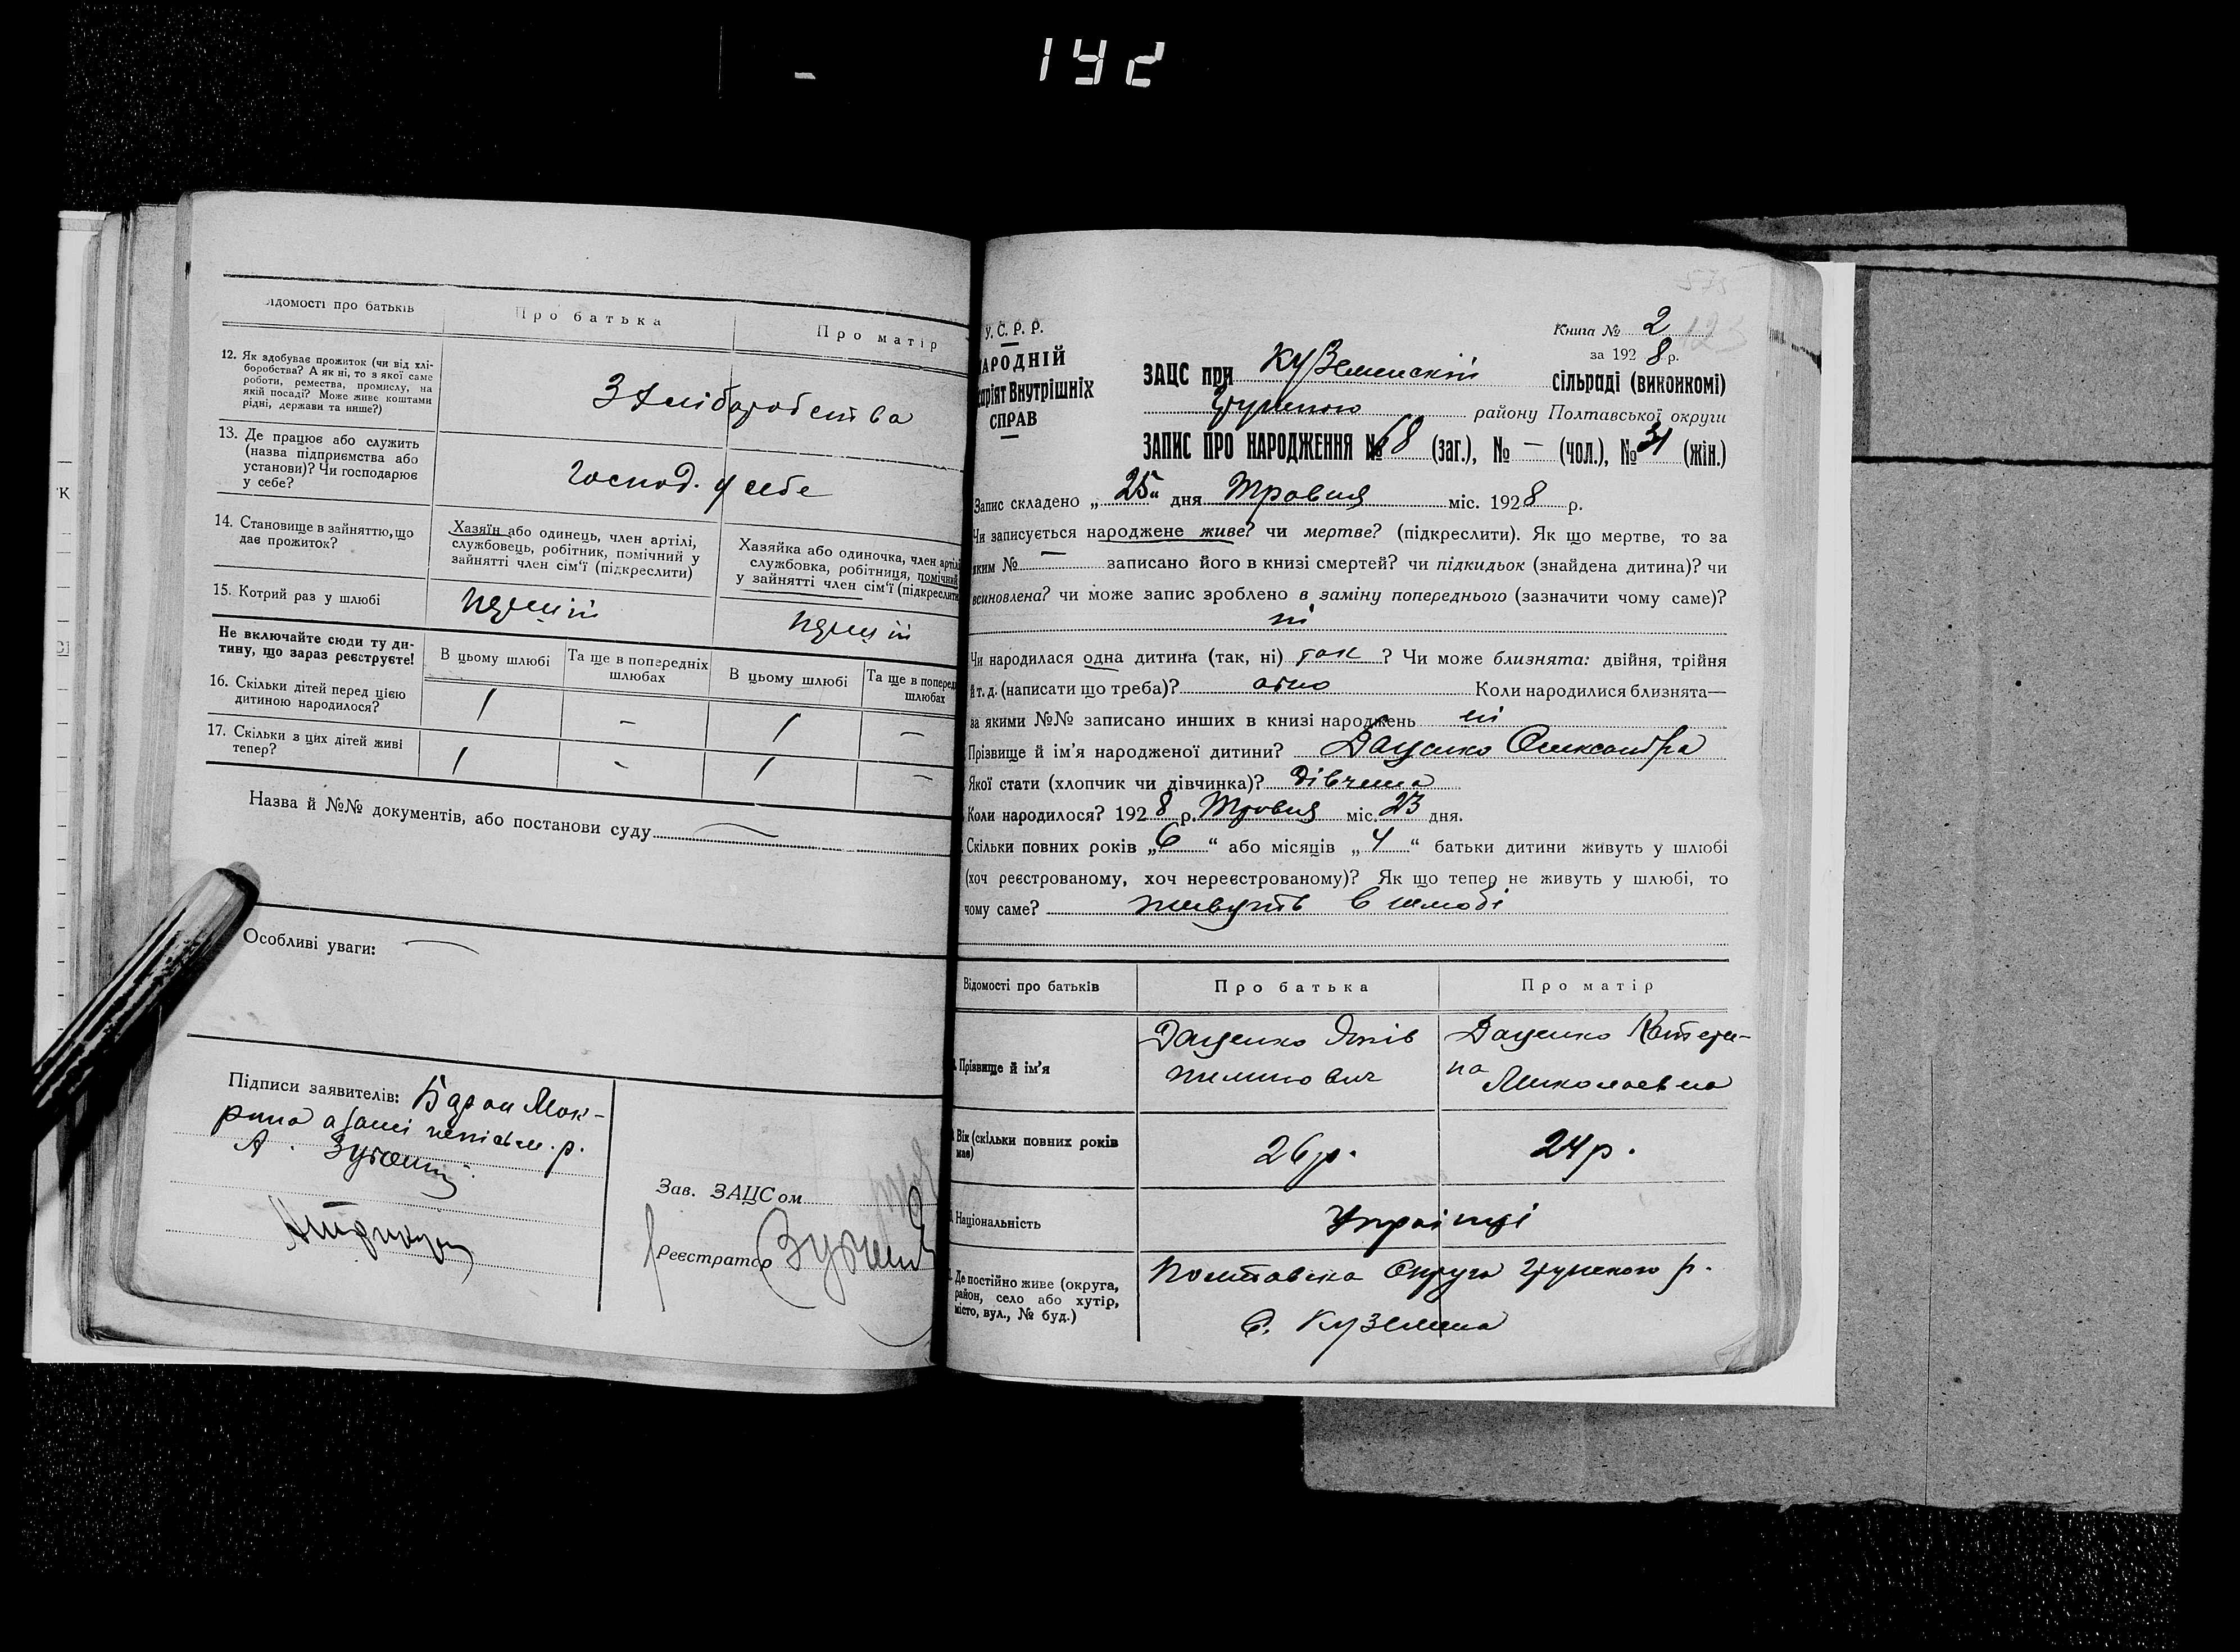 192
ідомості про батьків
Про батька
Про матір
12. Як здобуває прожиток (чи від хлі-
боробства? А як ні, то з якої саме
роботи, ремества, промислу, на
якій посаді? Може живе коштами
рідні, держави та инше?)
З хліборобства
13. Де працює або служить
(назва підприємства або
установи)? Чи господарює
у себе?
господ. у себе
14. Становище в зайняттю, що
дає прожиток?
Хазяїн або одинець, член артілі,
службовець, робітник, помічний у
зайнятті член сім'ї (підкреслити)
Хазяйка або одиночка, член артілі
службовка, робітниця, помічний
у зайнятті член сім'ї (підкреслити
15. Котрий раз у шлюбі
перший
перший
Не включайте сюди ту ди-
тину, що зараз реєструєте!
В цьому шлюбі
Та ще в попередніх
шлюбах
В цьому шлюбі
Та ще в поперед
шлюбах
16. Скільки дітей перед цією
дитиною народилося?
1 - 1 -
17. Скільки з цих дітей живі
тепер?
1 - 1 -
Назва й №№ документів, або постанови суду —
Особливі уваги: —
Підписи заявителів: Баран Мок-
рина а за
А.
Зав. ЗАЦСом
Реєстратор
У.С.Р.Р.
АРОДНІЙ
аріят Внутрішніх
СПРАВ
Книга № 2
за 1928 р.
ЗАЦС при Куземенскій сільраді (виконкомі)
Грунского району Полтавської округи
ЗАПИС ПРО НАРОДЖЕННЯ № 68 (заг.), № — (чол.), № 31 (жін.)
Запис складено „25“ дня Травня міс. 1928 р.
Чи записується народжене живе? чи мертве? (підкреслити). Як що мертве, то за
яким № — записано його в книзі смертей? чи підкидьок (знайдена дитина)? чи
всиновлена? чи може запис зроблено в заміну попереднього (зазначити чому саме)?
ні
Чи народилася одна дитина (так, ні) так ? Чи може близнята: двійня, трійня
й т. д. (написати що треба)? одно Коли народилися близнята—
за якими №№ записано инших в книзі народжень ні
Прізвище й ім'я народженої дитини? Даценко Олександра
Якої стати (хлопчик чи дівчинка)? дівчина
Коли народилося? 1928 р. Травня міс. 23 дня.
Скільки повних років „6“ або місяців „4“ батьки дитини живуть у шлюбі
(хоч реєстрованому, хоч нереєстрованому)? Як що тепер не живуть у шлюбі, то
чому саме? живуть в шлюбі
Відомості про батьків
Про батька
Про матір
Прізвище й ім'я
Даценко Яків
Пилипович
Даценко Катери-
на Миколаевна
Вік (скільки повних років
має)
26 р.
24 р.
Національність
Українці
Де постійно живе (округа,
район, село або хутір,
місто, вул., № буд.)
Полтавска Округа Грунского р.
С. Куземена